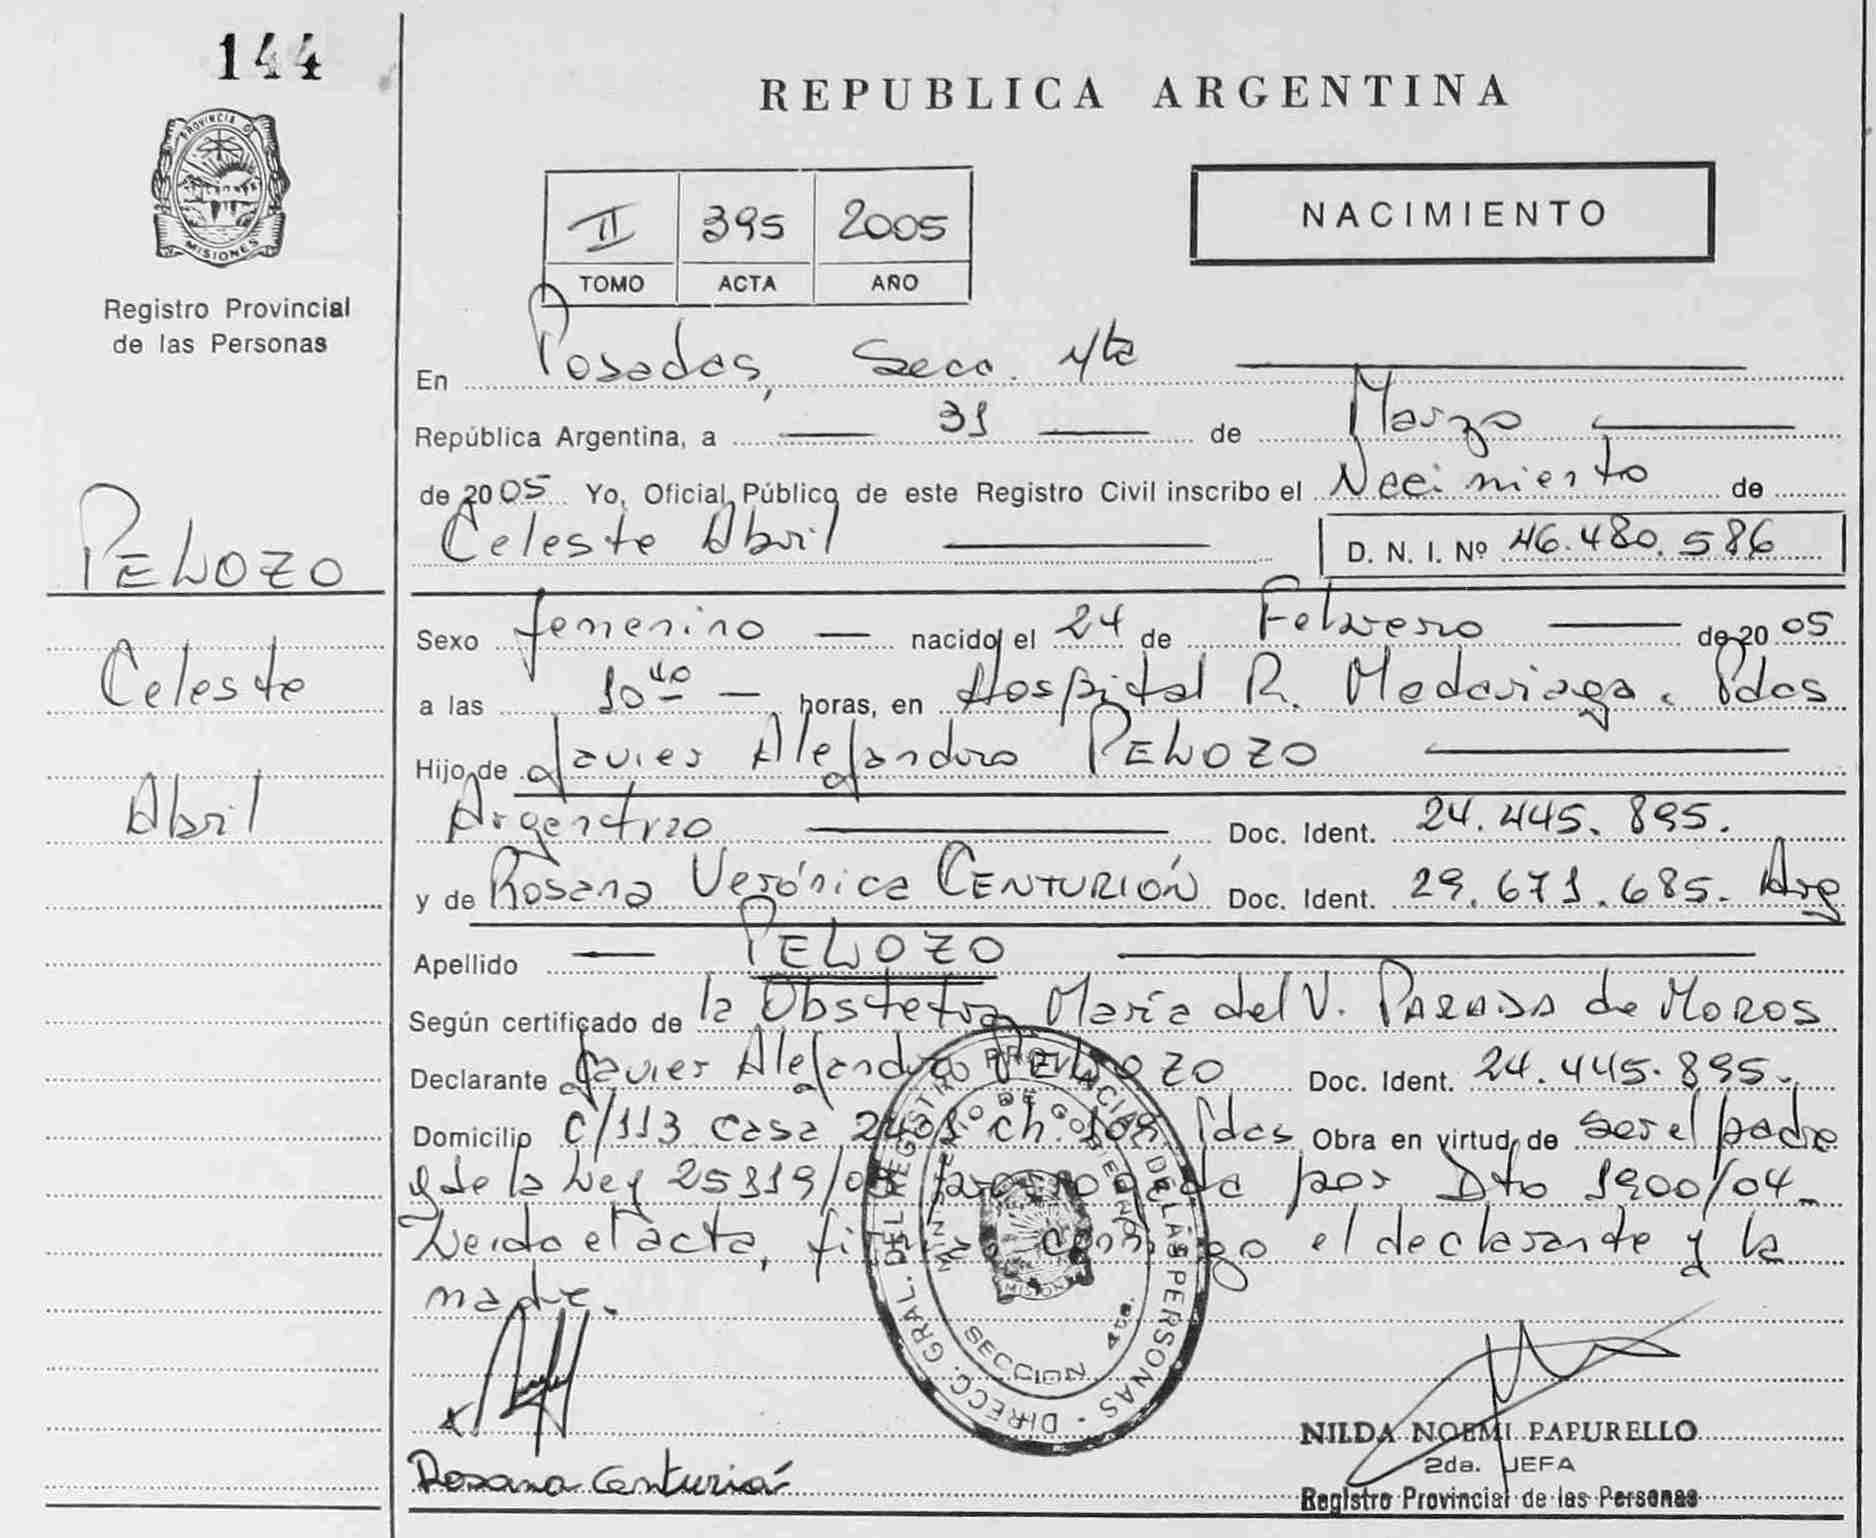 144
REPUBLICA ARGENTINA
PROVINCIA DE
MISIONES
Registro Provincial
de las Personas
II 395 2005
TOMO ACTA AÑO
NACIMIENTO
En Posadas, Secc. 4ta
República Argentina, a 31 de Marzo
de 2005 Yo, Oficial Público de este Registro Civil inscribo el Nacimiento de
Celeste Abril D. N. I. Nº 46.480.586
PELOZO
Celeste
Abril
Sexo femenino nacido el 24 de Febrero de 2005
a las 10 40 horas, en Hospital R. Madariaga. Pdas
Hijo de Javier Alejandro PELOZO
Argentino Doc. Ident. 24.445.895.
y de Rosana Verónica CENTURIÓN Doc. Ident. 29.671.685. Arg
Apellido PELOZO
Según certificado de la Obstetra María del V. PARADA de MOROS
Declarante Javier Alejandro PELOZO Doc. Ident. 24.445.895.
Domicilio C/113 casa 2401 ch. Pdas. Obra en virtud de ser el padre
y de la Ley 25819/03 prorrogada por Dto 1900/04.
Leida el acta, firman conmigo el declarante y la
madre.
DIRECC. GRAL. DEL REGISTRO PROVINCIAL DE LAS PERSONAS -
MINISTERIO DE GOBIERNO
MISIONES
SECCION 4ta.
Rosana Centurión
NILDA NOEMI PAPURELLO
2da. JEFA
Registro Provincial de las Personas